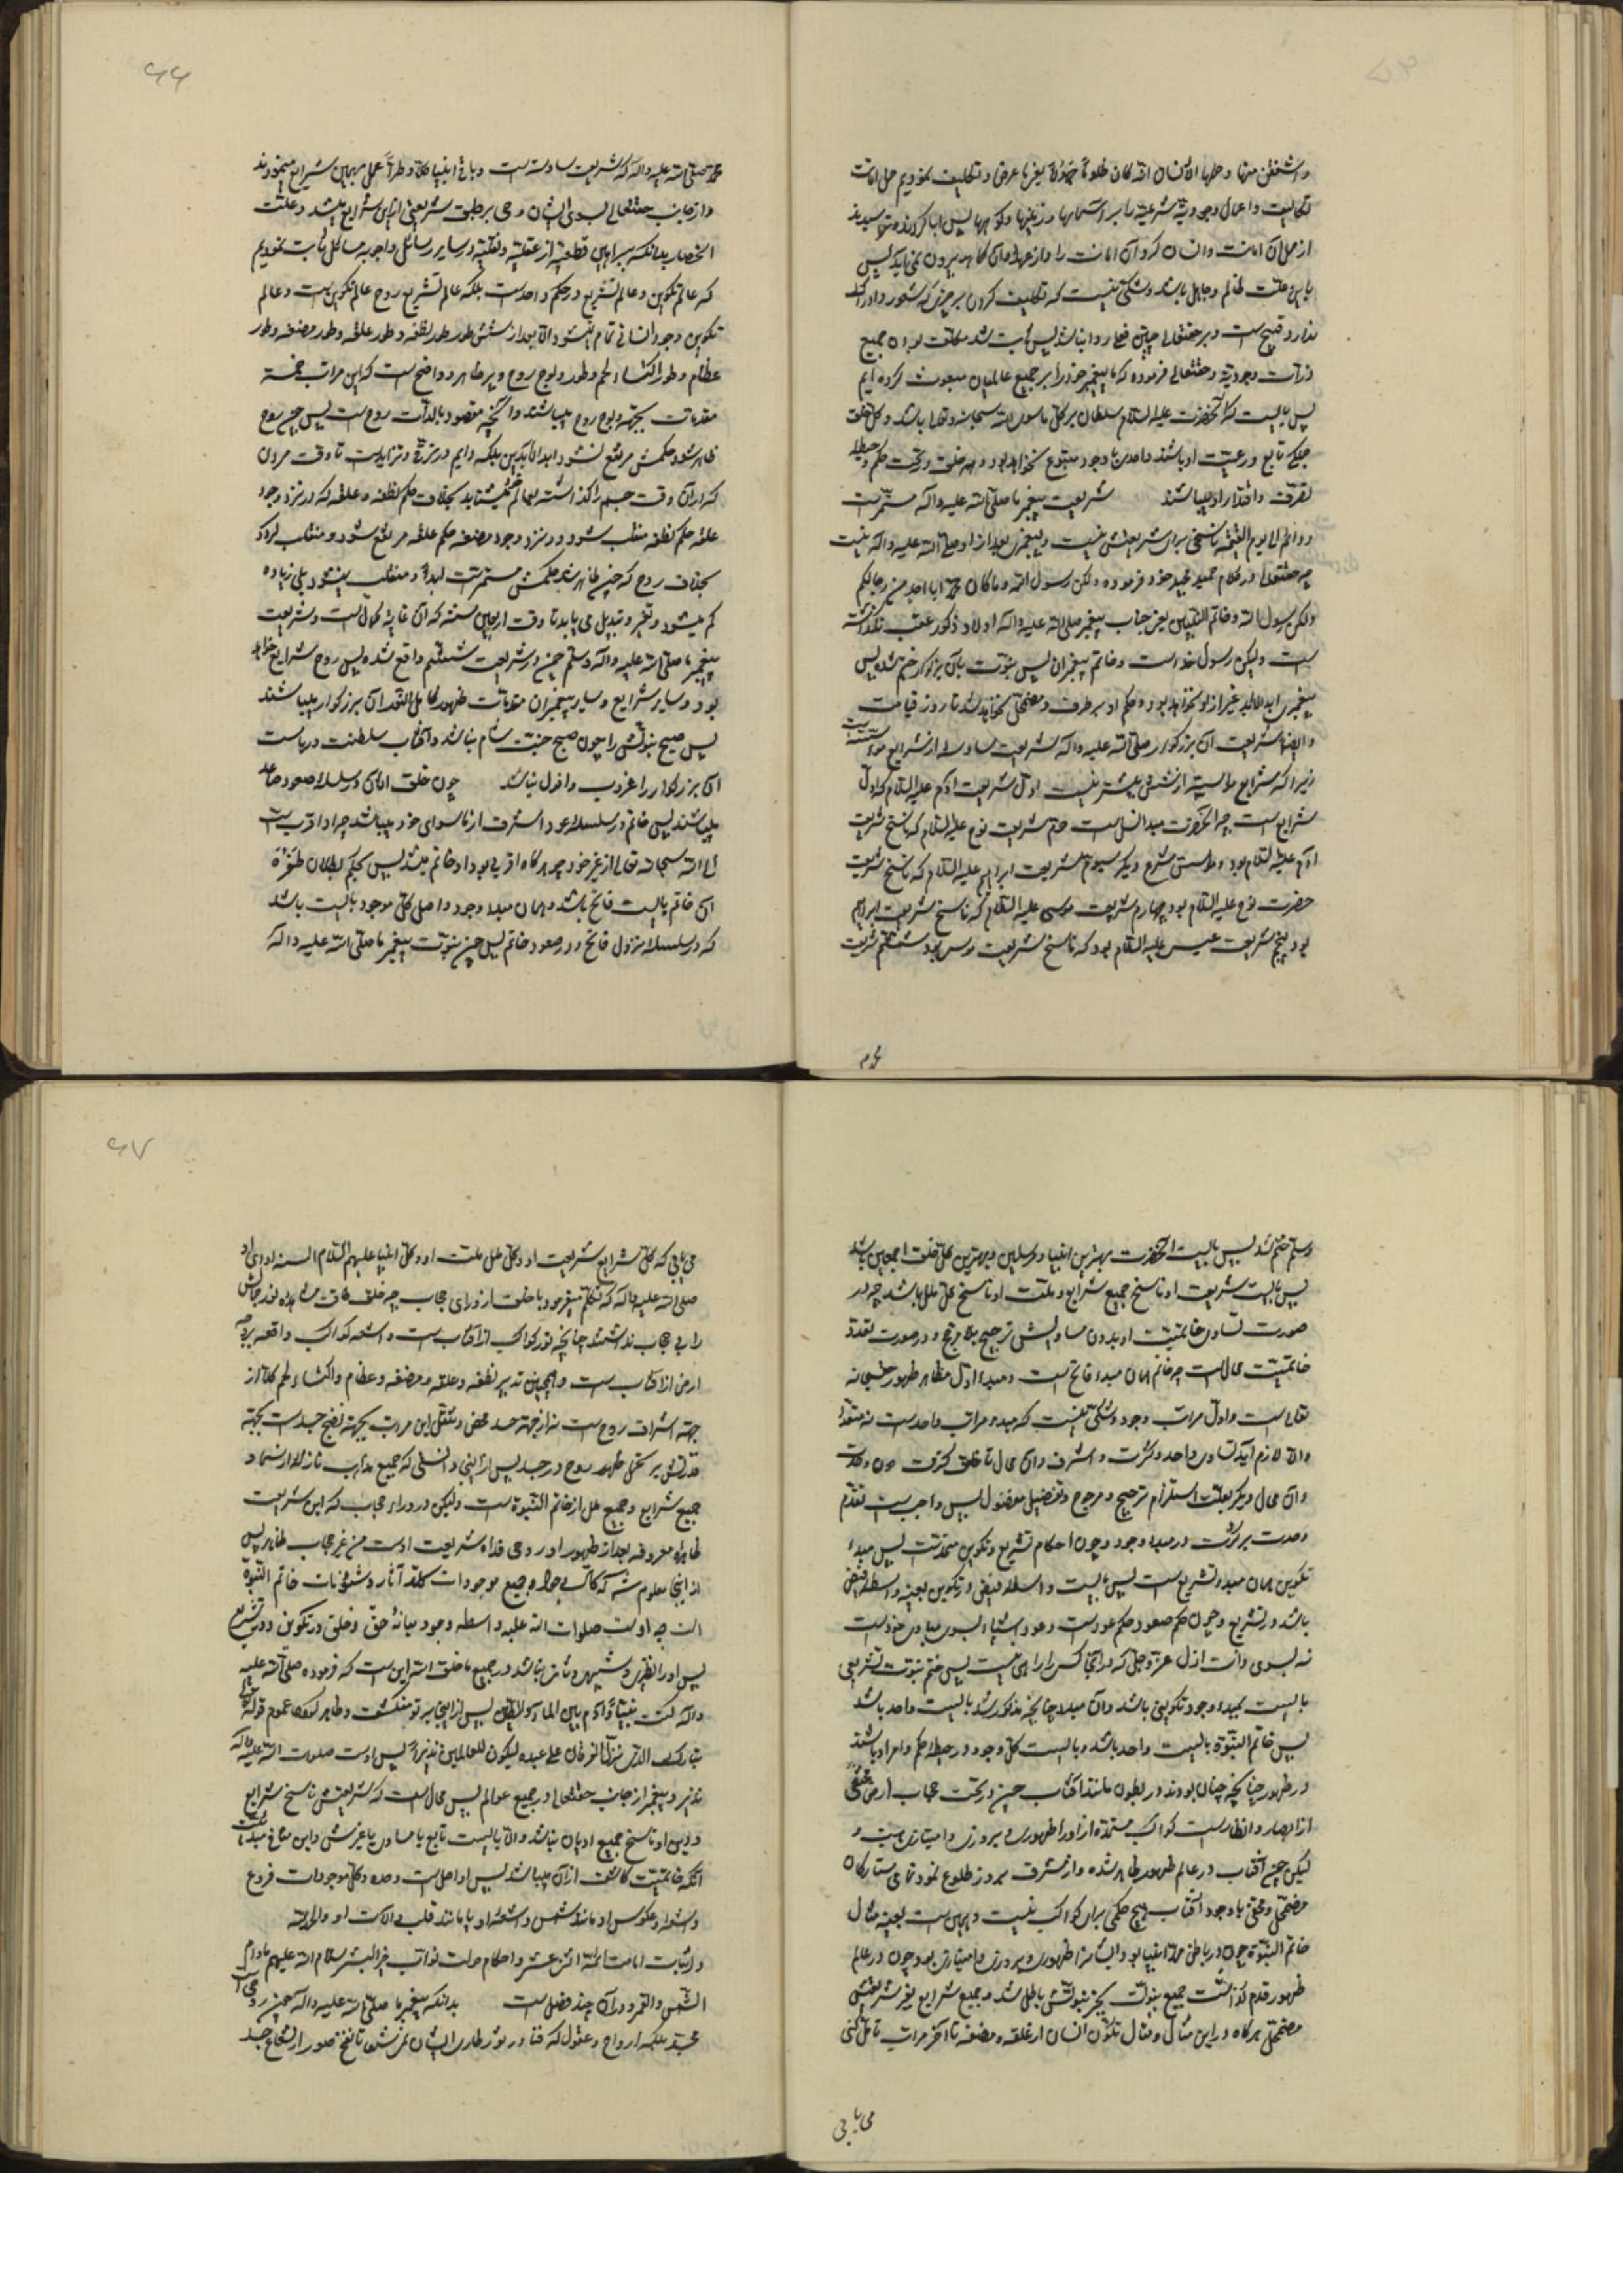 ۶۶
و اشفقن منها و حملها الانسان انه کان ظلوما جهولا یعنی ما عرض و تکلیف نمودیم حمل امانت
تکالیف و اعمال وجودیة شرعیة را بر آسمانها و زمینها و کوهها پس ابا کردند و ترسیدند
از حمل آن امانت و انسان کرد آن امانت را و از عهده آن کما هو بیرون نمی آید پس
باین علت ظالم و جاهل باشد و شکی نیست که تکلیف کردن بر چیزی که شعور و ادراک
ندارد قبیح است و بر حقتعالی چنین فعل روا نباشد پس ثابت شد مکلف بودن جمیع
ذرات وجودیة و حقتعالی فرموده که ما پیغمبر خود را بر جمیع عالمیان مبعوث کرده ایم
پس بایست که آنحضرت علیه السلام سلطان بر کل ما سوی الله سبحانه و تعالی باشد و کل خلق
جملگی تابع و رعیت او باشند و احدی با وجود متبوع نخواهد بود و همه خلق در تحت حکم و حیطه
تصرف و اقتدار او میباشند شریعت پیغمبر ما صلی الله علیه و آله مستمر است
و دائم الی یوم القیمة ناسخی برای شریعتش نیست و پیغمبری بعد از او صلی الله علیه و آله نیست
چه حقتعالی در کلام حمید مجید خود فرموده و لکن رسول الله و ما کان محمد ابا احد من رجالکم
و لکن رسول الله و خاتم النبیین یعنی جناب پیغمبر صلی الله علیه و آله اولاد ذکور عقب نگذاشته
است و لیکن رسول خداست و خاتم پیغمبران پس نبوت بآن بزرگوار ختم شد پس
پیغمبری ابد الاباد غیر از او نخواهد بود و حکم او برطرف و مضمحل نخواهد شد تا روز قیامت
و ایضا شریعت آن بزرگوار صلی الله علیه و آله شریعت سادسه از شرایع مؤسسه است
زیرا که شرایع مؤسسه از شش بیشتر نیست اول شریعت آدم علیه السلام که اول
شرایع است چه آنحضرت مبدا نسل است دوم شریعت نوح علیه السلام که ناسخ شریعت
آدم علیه السلام بود و مؤسس شرع دیگر سیوم شریعت ابراهیم علیه السلام که ناسخ شریعت
حضرت نوح علیه السلام بود چهارم شریعت موسی علیه السلام که ناسخ شریعت ابراهیم
بود پنجم شریعت عیسی علیه السلام بود که ناسخ شریعت موسی بود ششم شریعت
محمد
محمد صلی الله علیه و آله که شریعت سادسه است و باقی انبیا کلا و طرا عمل بهمین شرایع مینمودند
و از جانب حقتعالی بسوی ایشان وحی بر طبق شریعتی از این شرایع میشد و علت
انحصار بدانکه ببراهین قطعیه از عقلیه و نقلیه در سایر رسائل و اجوبه مسائل ثابت نمودیم
که عالم تکوین و عالم تشریع در حکم واحد است بلکه عالم تشریع روح عالم تکوین است و عالم
تکوین وجود انسانی تمام نمیشود الا بعد از شش طور طور نطفه و طور علقه و طور مضغه و طور
عظام و طور اکتساء لحم و طور ولوج روح و پر ظاهر و واضح است که این مراتب خمسه
مقدمات بجهة ولوج روح میباشند و آنچه مقصود بالذات روح است پس چون روح
ظاهر شود حکمش مرتفع نشود ابد الابدین بلکه دایم در ترقی و تزاید است تا وقت مردن
که در آن وقت جسم را گذاشته بعالم میشتابد بخلاف حکم نطفه و علقه که در نزد وجود
علقه حکم نطفه منقلب شود و در نزد وجود مضغه حکم علقه مرتفع شود و منقلب گردد
بخلاف روح که چون ظاهر شد حکمش مستمر است ابدا و منقلب نمیشود بلی زیاده
کم میشود و تغییر و تبدیل می یابد تا وقت اربعین سنه که آن غایة کمال است و شریعت
پیغمبر ما صلی الله علیه و آله و سلم چون در شریعت ششم واقع شده پس روح شرایع خواهد
بود و سایر شرایع و سایر پیغمبران مقدمات ظهور کامل النور آن بزرگوار میباشند
پس صبح نبوتش را چون صبح جنت شام نباشد و آفتاب سلطنت و ریاست
آن بزرگوار را غروب و افول نباشد چون خلق اناسی در سلسله صعود صاعد
میباشند پس خاتم در سلسله عود اشرف از ما سوای خود میباشد چرا او اقرب است
الی الله سبحانه تعالی از غیر خود چه هرگاه اقربی بود او خاتم میشد پس بحکم بطلان طفره
این خاتم بایست فاتح باشد و همان مبدء وجود و اصل کل موجود بایست باشد
که در سلسله نزول فاتح و در صعود خاتم پس چون نبوت پیغمبر ما صلی الله علیه و آله
۶۷
و سلم ختم شد پس بایست آنحضرت بهترین انبیا و مرسلین و بهترین کل خلق اجمعین باشد
پس بایست شریعت او ناسخ جمیع شرایع و ملت او ناسخ کل ملل باشد چه در
صورت تساوی خاتمیت او بدون مساویش ترجیح بلا مرجح و در صورت تعدد
خاتمیت محال است چه خاتم همان مبدء فاتح است و مبدء اول مظاهر ظهور حق سبحانه
تعالی است و اول مراتب وجود و شکی نیست که مبدء مراتب واحد است نه متعدد
و الا لازم آید تساوی واحد و کثرت و اشرف و آن محال
و آن محال دیگر بعلت استلزام ترجیح مرجوح و تفضیل مفضول پس واجب است تقدم
وحدت بر کثرت در مبدء وجود و چون احکام تشریع و تکوین متحد است پس مبدء
تکوین همان مبدء تشریع است پس بایست واسطه فیض در تکوین بعینه واسطه فیض
باشد در تشریع و چون حکم صعود حکم عود است و عود اشیاء بسوی مبادی خود است
نه بسوی ذات ازل عز و جل که در آنجا کس را راهی نیست پس ختم نبوت تشریعی
بایست بمبدء وجود تکوینی باشد و آن مبدء چنانچه مذکور شد بایست واحد باشد
پس خاتم النبوة بایست واحد باشد و بایست کل وجود در حیطه حکم و امر او باشند
در ظهور چنانچه چنان بودند در بطون مانند آفتاب چون در تحت حجاب ارض مختفی
از ابصار و انظار است کواکب مستمده از او را ظهوری و بروزی و امتیازی هست و
لیکن چون آفتاب در عالم ظهور ظاهر شده و از مشرق بروز طلوع نمود تمامی ستارگان
مضمحل و مختفی با وجود آفتاب هیچ حکمی برای کواکب نیست و همین است بعینه مثال
خاتم النبوة چون در باطن همه انبیا بود و ایشان را ظهوری و بروزی و امتیازی بود چون در عالم
ظهور قدم گذاشت جمیع نبوات بجز نبوتش باطل شد و جمیع شرایع بغیر شریعتش
مضمحل هرگاه در این مثال و مثال تکون انسان از علقه و مضغه تا آخر مراتب تامل کنی
می یابی
می یابی که کل شرایع شریعت او و کل ملل ملت او و کل انبیا علیهم السلام السنه او
صلی الله علیه و آله که تکلم میفرمود با خلق از ورای حجاب چه خلق طاقت مشاهده نور جمالش
را بی حجاب نداشتند چنانچه نور کواکب از آفتاب است و اشعه کواکب واقعه بر وجه
ارض از آفتاب است و همچنین تدبیر نطفه و علقه و مضغه و عظام و اکتساء لحم کلا از
جهة اشراق روح است نه از جهة جسد محض و تنقل این مراتب بجهة نضج جسد است بجهة
قدرتش بر تحمل ظهور روح در جسد پس از اینجا دانستی که جمیع مذاهب نازله از سماء
جمیع شرایع و جمیع ملل از خاتم النبوة است ولیکن در وراء حجاب که این شریعت
ظاهره معروفه بعد از ظهور او روحی فداه شریعت اوست من غیر حجاب ظاهر پس
از اینجا معلوم شد که جمیع موجودات کلا آثار و شئونات خاتم النبوة
است چه اوست صلوات الله علیه واسطه وجود میانه حق و خلق در تکوین و در تشریع
پس او را نظیری و شبیهی و ثانی نباشد در جمیع ما خلق الله این است که فرموده صلی الله علیه
و آله کنت نبیا و آدم بین الماء و الطین پس از این بر تو منکشف و ظاهر عموم قوله تعالی
تبارک الذی نزل الفرقان علی عبده لیکون للعالمین نذیرا پس اوست صلوات الله علیه و آله
نذیر و پیغمبر از جانب حقتعالی در جمیع عوالم پس محال است که شریعتش ناسخ شرایع
و دین او ناسخ جمیع ادیان نباشد و الا بایست تابع یا مساوی با غیرش و این منافی مبدئیت
آنکه خاتمیت کاشف از آن میباشد پس او اصل است وحده و کل موجودات فروع
و اشعه و عکوس او مانند شمس و اشعه او یا مانند قلب و آلات او و الحمد لله
در اثبات امامت ائمه اثنی عشر و احکام حملت نواب خیر البشر سلام الله علیهم ما دام
الشمس و القمر و در آن چند فصل است بدانکه پیغمبر ما صلی الله علیه و آله چون روحی است
مجرد بلکه ارواح و عقول که فنا و دثور طاری ایشان نمی شود تا نفخ صور از جسد